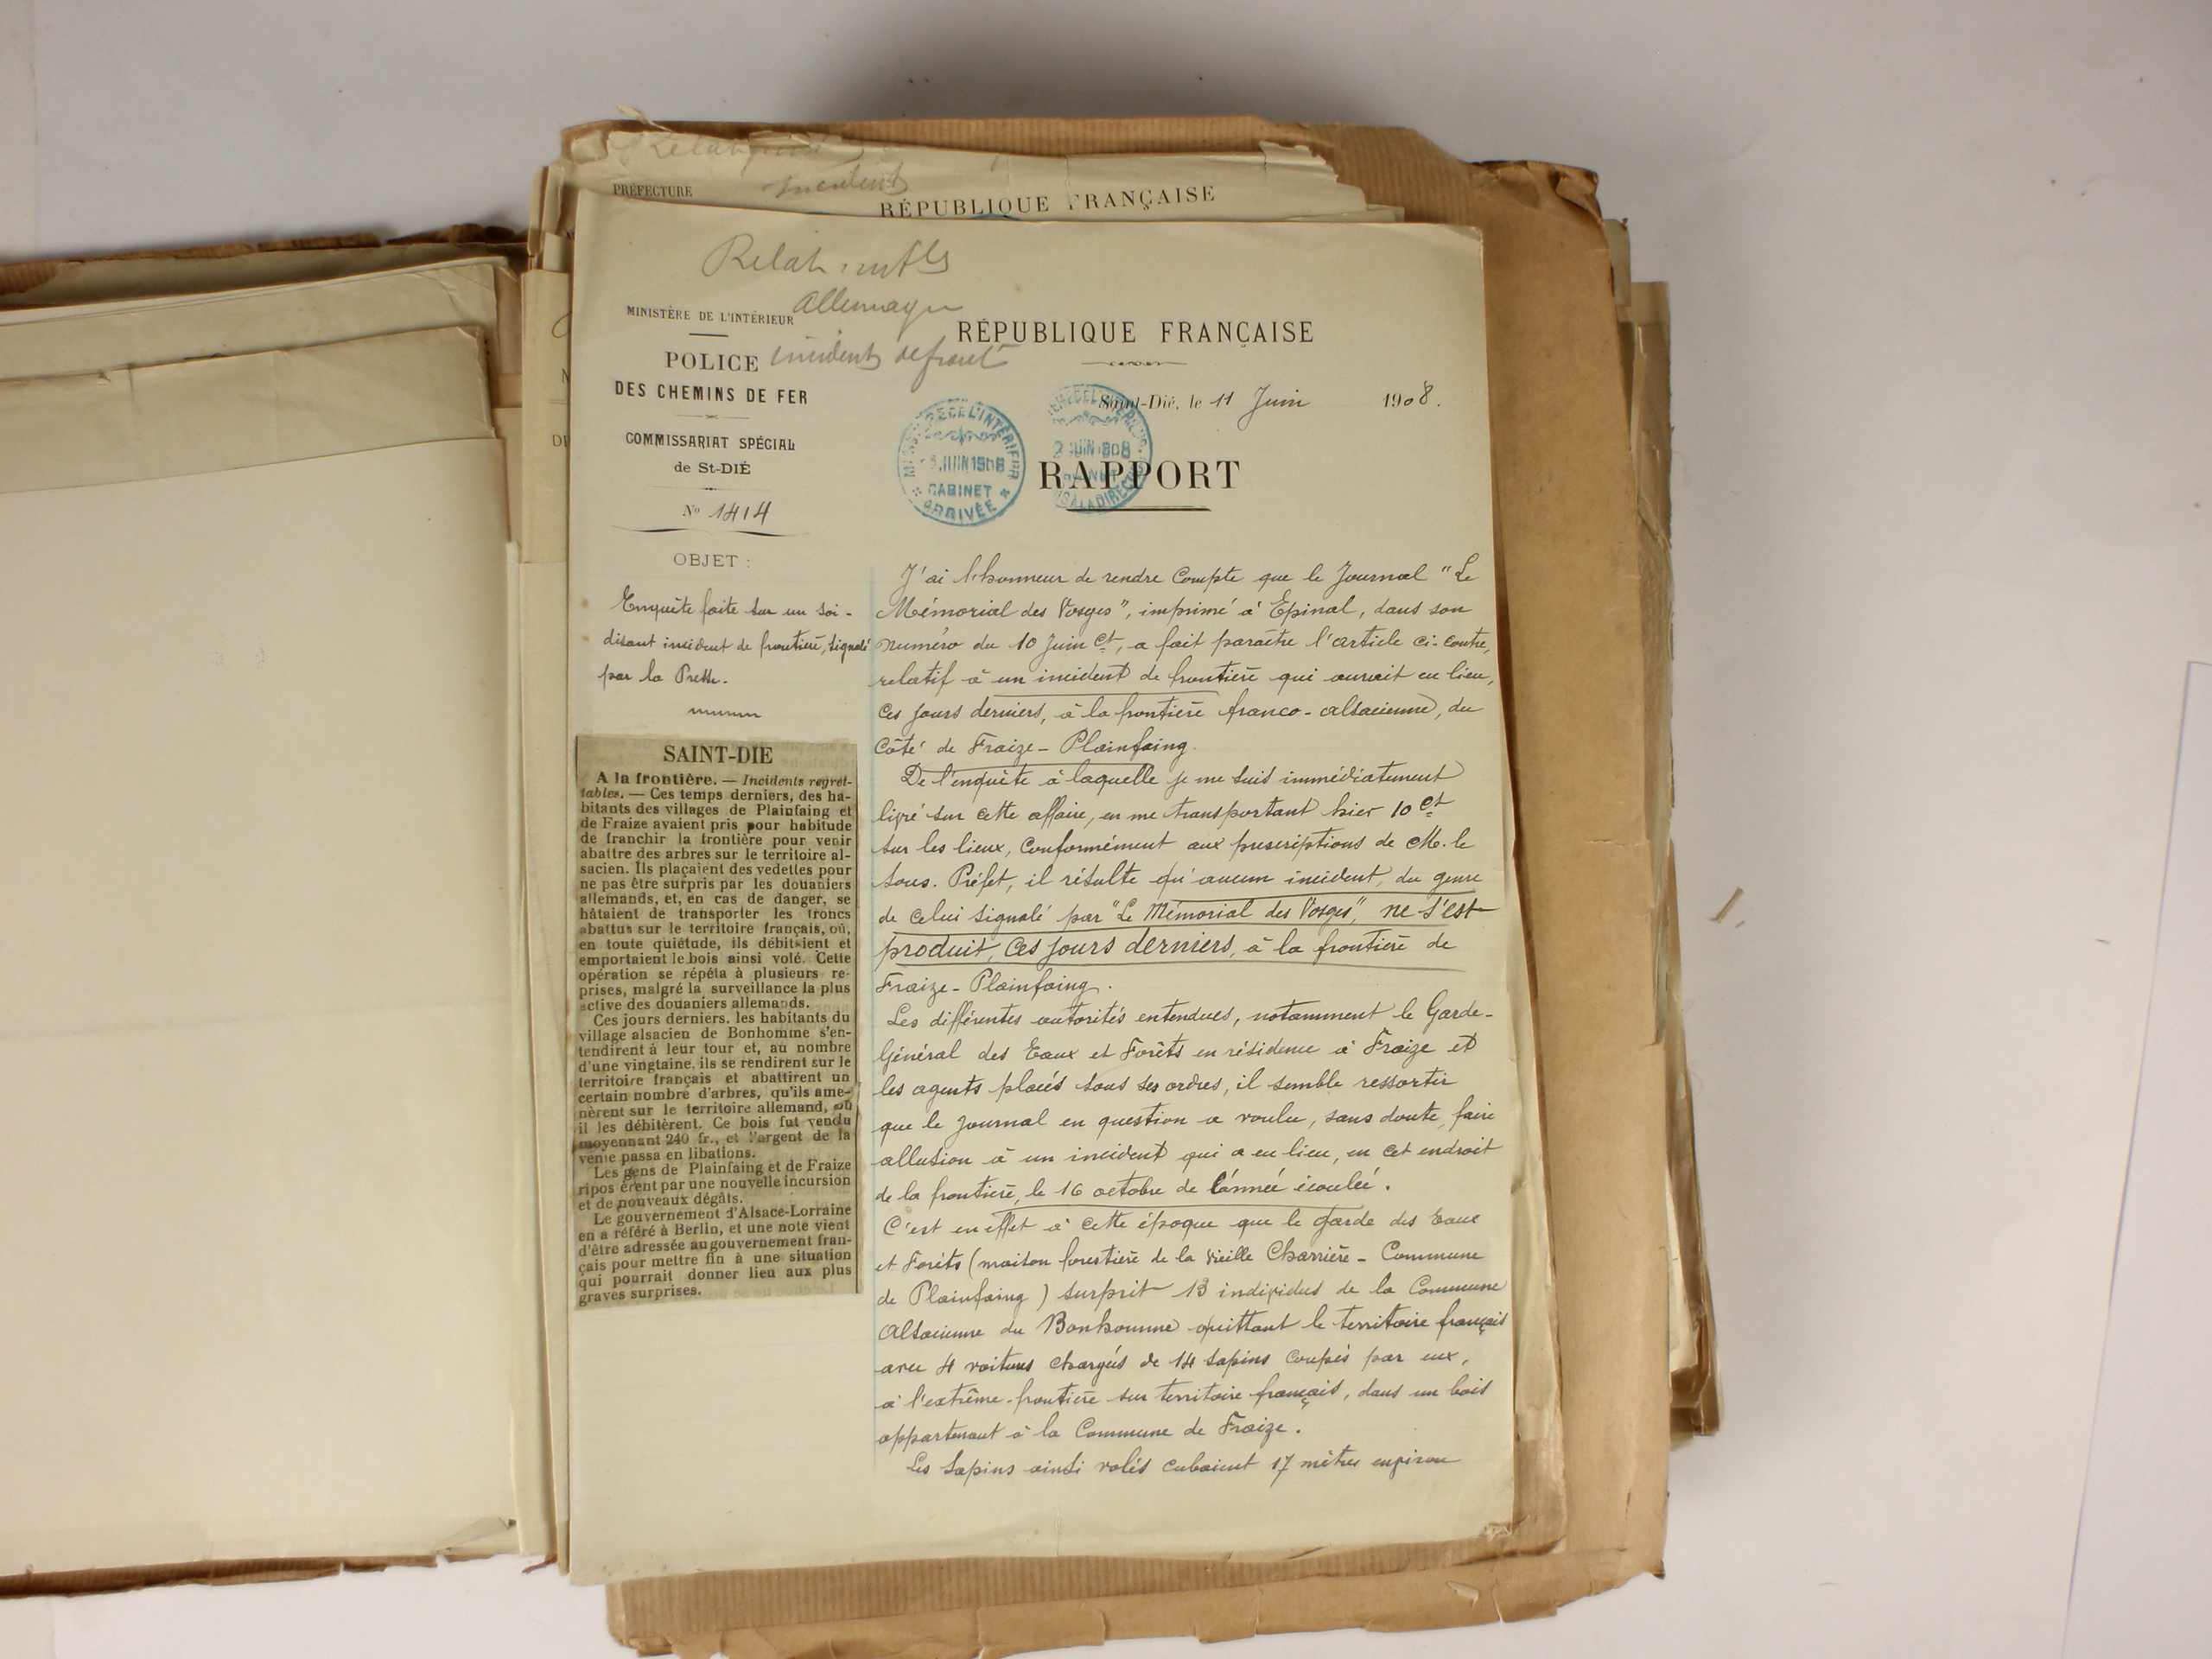 PRÉFECTURE
RÉPUBLIQUE FRANÇAISE
Allemagne
MINISTÈRE DE L'INTÉRIEUR
RÉPUBLIQUE FRANÇAISE
POLICE
incidents de front
DES CHEMINS DE FER
Saint-Dié, le 11 Juin 1908.
COMMISSARIAT SPÉCIAL
de St-DIÉ
N° 1414
MINISTÈRE DE L'INTÉRIEUR
JUIN 1908
CABINET
ARRIVÉE
JUIN 1908
RAPPORT
OBJET :
Enquête faite sur un soi-
disant incident de frontière, signalé
par la Presse.
SAINT-DIE
A la frontière. — Incidents regret-
tables. — Ces temps derniers, des ha-
bitants des villages de Plainfaing et
de Fraize avaient pris pour habitude
de franchir la frontière pour venir
abattre des arbres sur le territoire al-
sacien. Ils plaçaient des vedettes pour
ne pas être surpris par les douaniers
allemands, et, en cas de danger, se
hâtaient de transporter les troncs
abattus sur le territoire français, où,
en toute quiétude, ils débitaient et
emportaient le bois ainsi volé. Cette
opération se répéta à plusieurs re-
prises, malgré la surveillance la plus
active des douaniers allemands.
Ces jours derniers, les habitants du
village alsacien de Bonhomme s'en-
tendirent à leur tour et, au nombre
d'une vingtaine, ils se rendirent sur le
territoire français et abattirent un
certain nombre d'arbres, qu'ils ame-
nèrent sur le territoire allemand, où
il les débitèrent. Ce bois fut vendu
moyennant 240 fr., et l'argent de la
vente passa en libations.
Les gens de Plainfaing et de Fraize
ripos èrent par une nouvelle incursion
et de nouveaux dégâts.
Le gouvernement d'Alsace-Lorraine
en a référé à Berlin, et une note vient
d'être adressée au gouvernement fran-
çais pour mettre fin à une situation
qui pourrait donner lieu aux plus
graves surprises.
J'ai l'honneur de rendre Compte que le Journal "Le
Mémorial des Vosges", imprimé à Epinal, dans son
numéro du 10 Juin Ct, a fait paraître l'article ci-contre,
relatif à un incident de frontière qui aurait eu lieu,
ces jours derniers, à la frontière franco-alsacienne, du
côté de Fraize-Plainfaing.
De l'enquête à laquelle je me suis immédiatement
livré sur cette affaire, en me transportant hier 10 Ct
sur les lieux, Conformément aux prescriptions de M. le
Sous-Préfet, il résulte qu'aucun incident, du genre
de celui signalé par "Le Mémorial des Vosges", ne s'est
produit, ces jours derniers, à la frontière de
Fraize-Plainfaing.
Les différentes autorités entendues, notamment le Garde-
Général des Eaux et Forêts en résidence à Fraize et
les agents placés sous ses ordres, il semble ressortir
que le journal en question a voulu, sans doute, faire
allusion à un incident qui a eu lieu, en cet endroit
de la frontière, le 16 octobre de l'année écoulée.
C'est en effet à cette époque que le garde des Eaux
et Forêts (maison forestière de la Vieille Charrière - Commune
de Plainfaing) surprit 13 individus de la Commune
Alsacienne du Bonhomme quittant le territoire français
avec 4 voitures chargés de 14 sapins coupés par eux,
à l'extrême-frontière sur territoire français, dans un bois
appartenant à la Commune de Fraize.
Les sapins ainsi volés cubaient 17 mètres environ